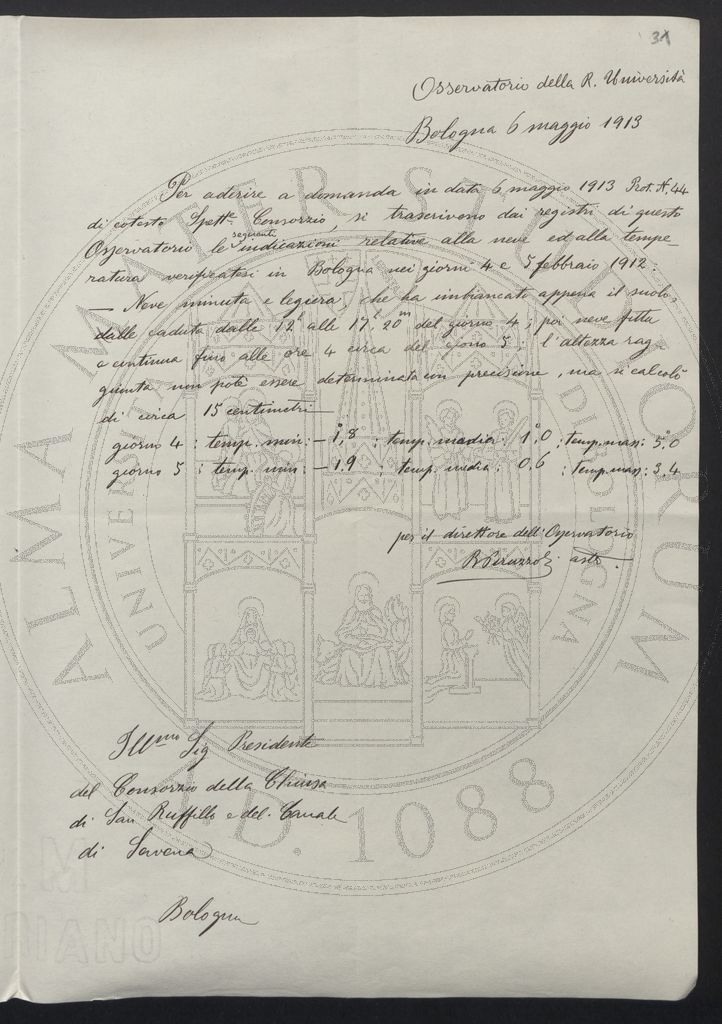 31
Osservatorio della R. Università
Bologna 6 maggio 1913
Per aderire a domanda in data 6 maggio 1913 Prot. N. 44
di cotesto Spett.le Consorzio, si trascrivono dai registri di questo
Osservatorio le seguenti indicazioni relative alla neve ed alla tempe-
ratura verificatesi in Bologna nei giorni 4 e 5 febbraio 1912:
— Neve minuta e legiera, che ha imbiancato appena il suolo,
dalle caduta dalle 12h alle 17h. 20m del giorno 4; poi neve fitta
e continua fino alle ore 4 circa del giorno 5: l'altezza rag-
giunta non potè essere determinata con precisione, ma si calcolò
di circa 15 centimetri —
giorno 4: temp. min: -1°,8 ; temp. media: 1°,0 ; temp. mass: 5°,0
giorno 5: temp. min: -1.9 ; temp. media: 0.6 ; temp. mass: 3.4
per il direttore dell'Osservatorio
astr.
Ill.mo Sig Presidente
del Consorzio della Chiusa
di San Ruffillo e del Canale
di Savena
Bologna
ALMA MATER STUDIORUM
A.D. 1088
M
RIANO